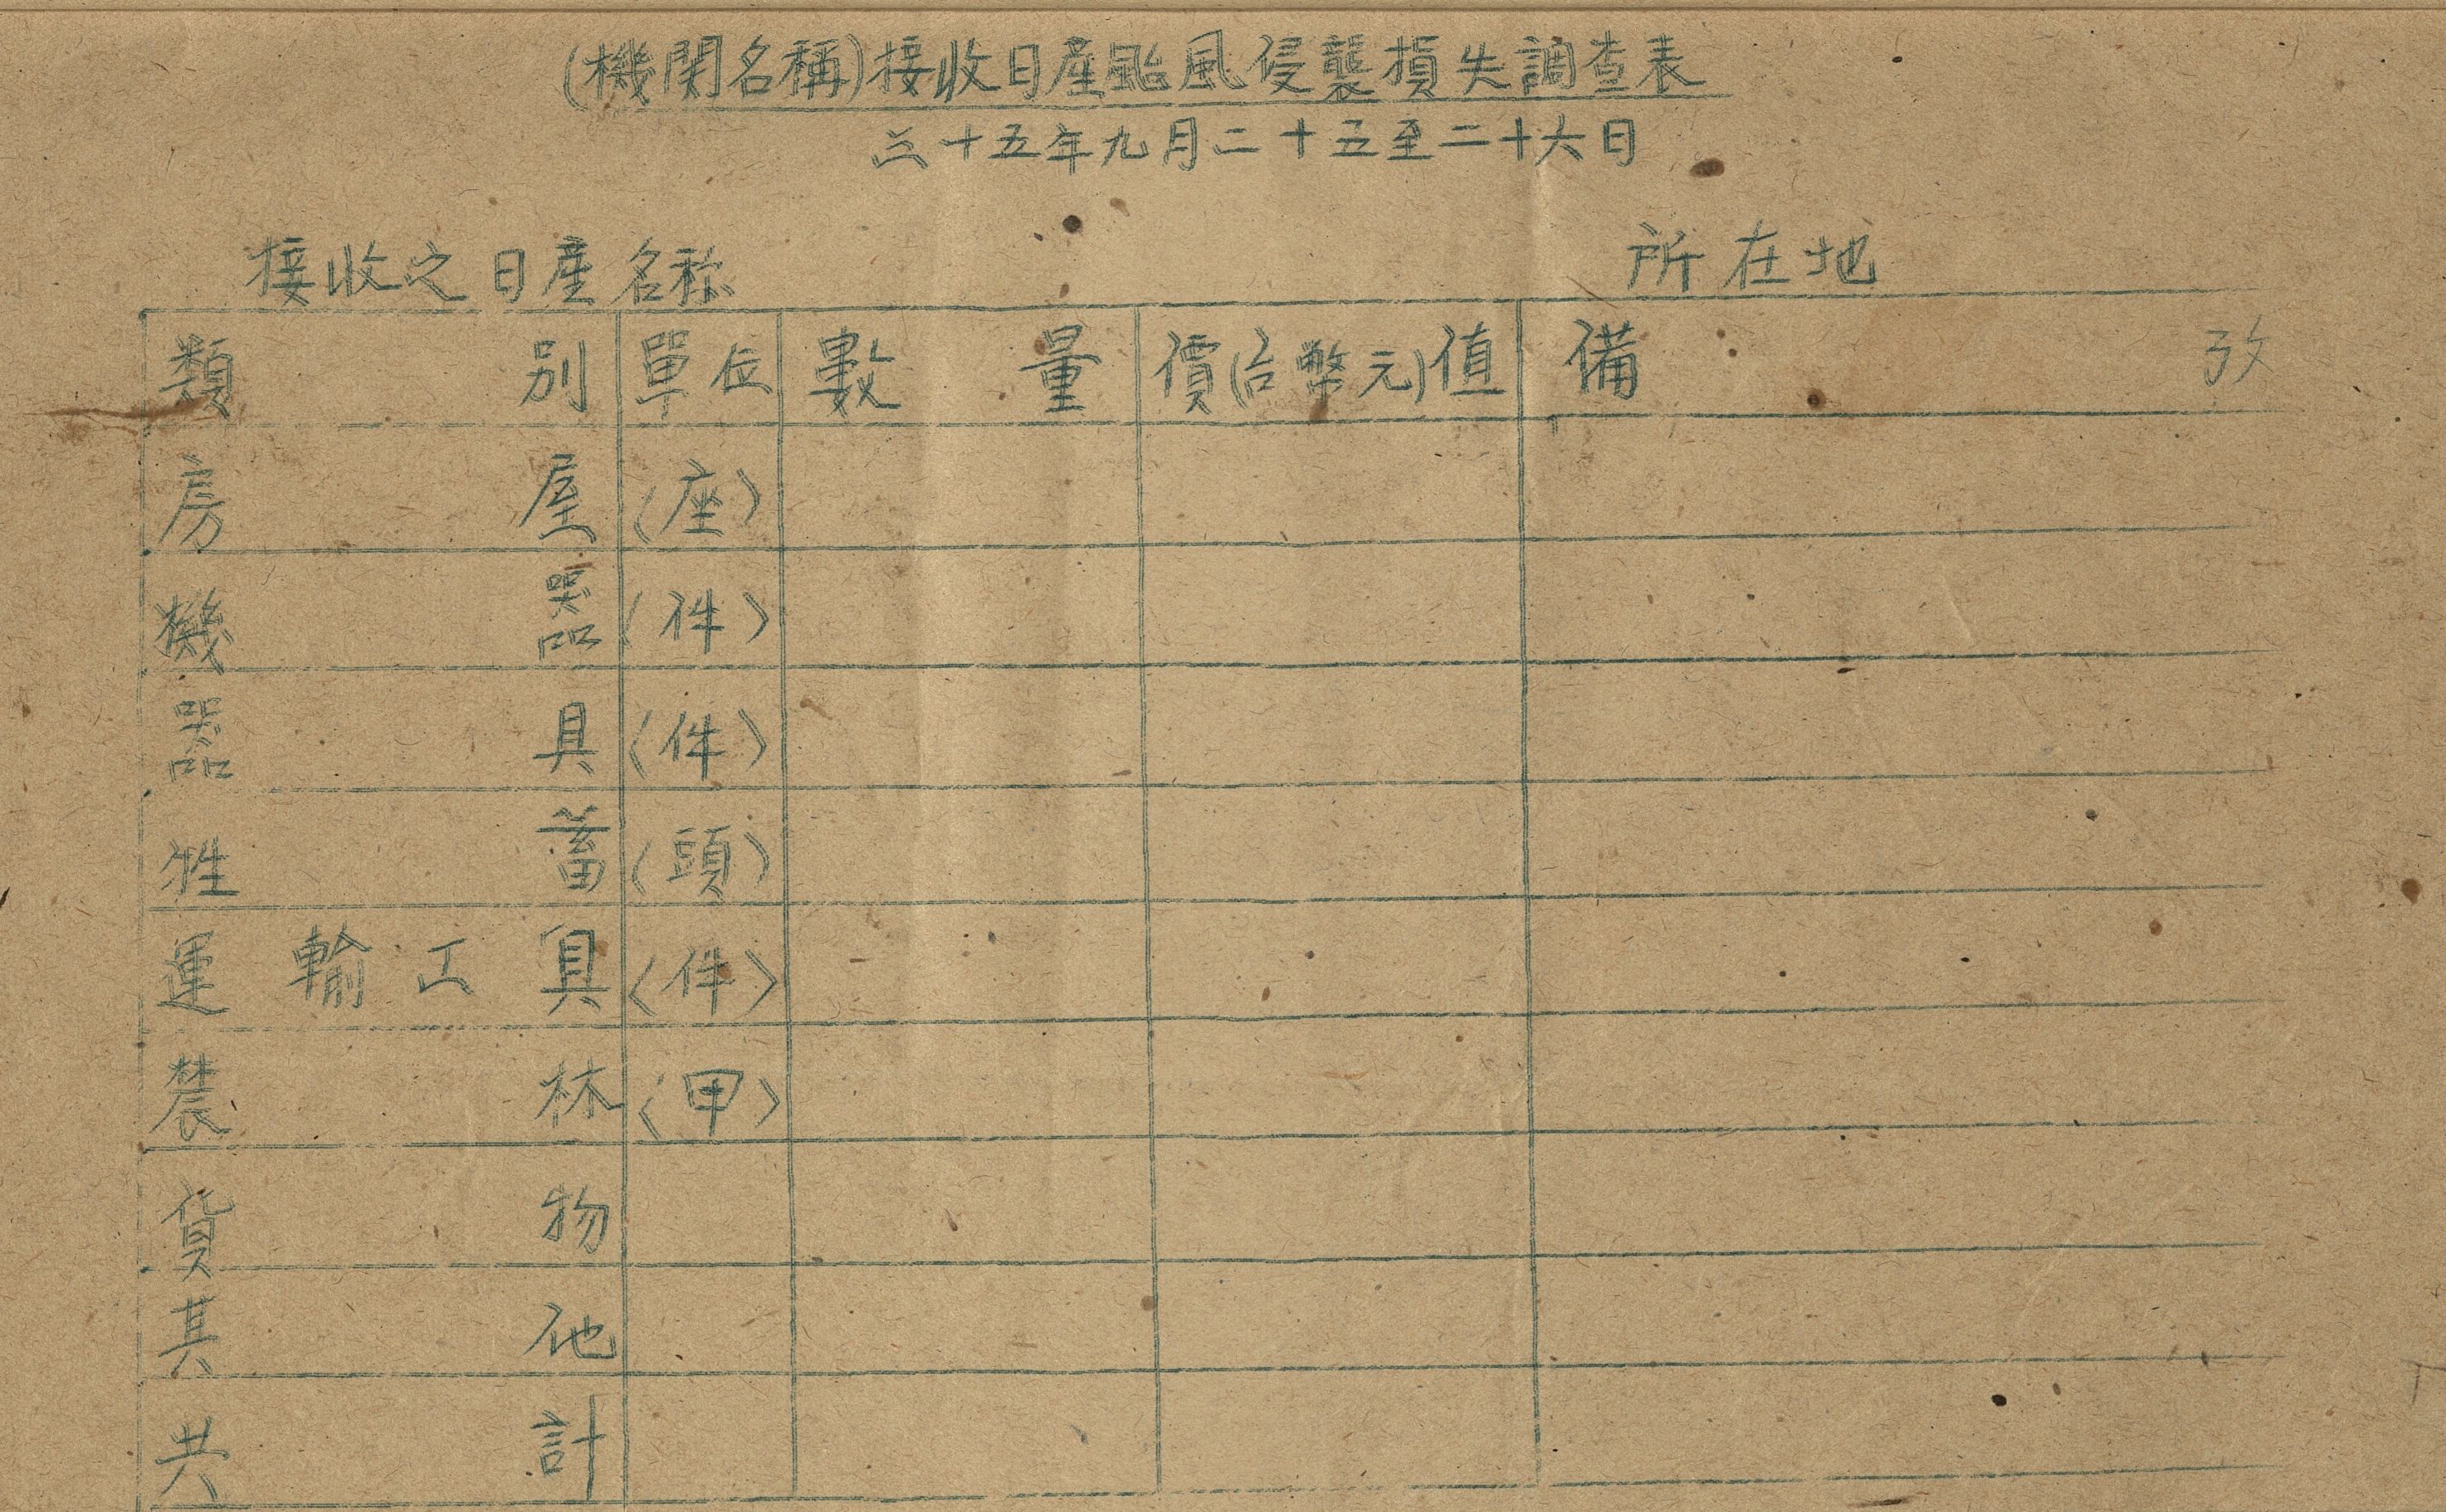 (機関名稱)接收日產颱風侵襲損失調查表
三十五年九月二十五至二十六日
接收之日產名称 所在地
類別 單位 數量 價(台幣元)值 備攷
房屋 (座)
機器 (件)
器具 (件)
牲蓄 (頭)
運輸工具 (件)
農林 (甲)
貨物
其他
共計